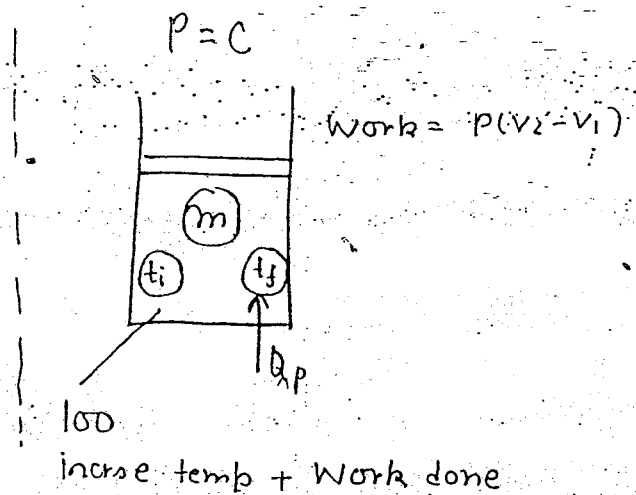 P = C
Work = P(V2-V1)
m
ti
tf
Qp
100
incrse temp + Work done